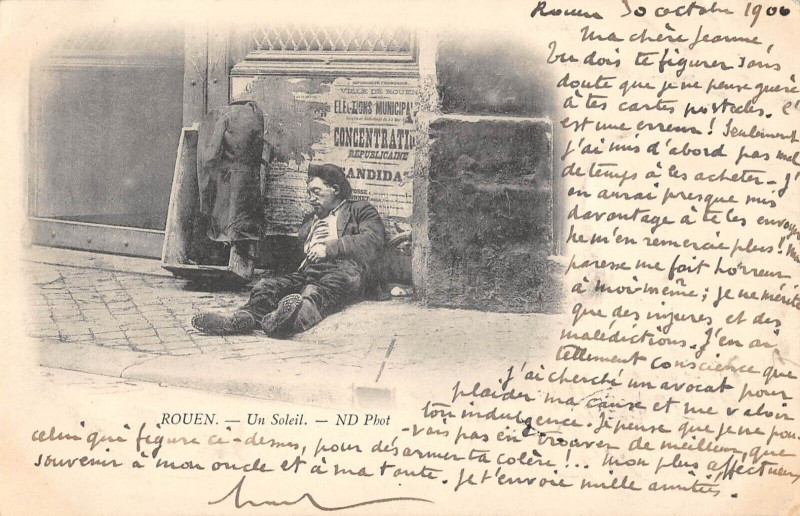 Rouen 30 octobre 1900
Ma chère Jeanne,
Tu dois te figurer sans
doute que je ne pense guère
à tes cartes postales. C'
est une erreur! Seulement
j'ai mis d'abord pas mal
de temps à les acheter - J'
en aurai presque mis
davantage à te les envoyer
Ne m'en remercie plus! Ma
paresse me fait horreur
à moi-même; je ne mérite
que des injures et des
malédictions. J'en ai
tellement conscience que
j'ai cherché un avocat pour
plaider ma cause et me valoir
ton indulgence. Je pense que je ne pou-
-vais pas en trouver de meilleur que
celui qui figure ci-dessus, pour désarmer ta colère!... Mon plus affectueux
souvenir à mon oncle et à ma tante. Je t'envoie mille amitiés.
VILLE DE ROUEN
ELECTIONS MUNICIPA
CONCENTRATI
RÉPUBLICAINE
CANDIDA
ROUEN. — Un Soleil. — ND Phot